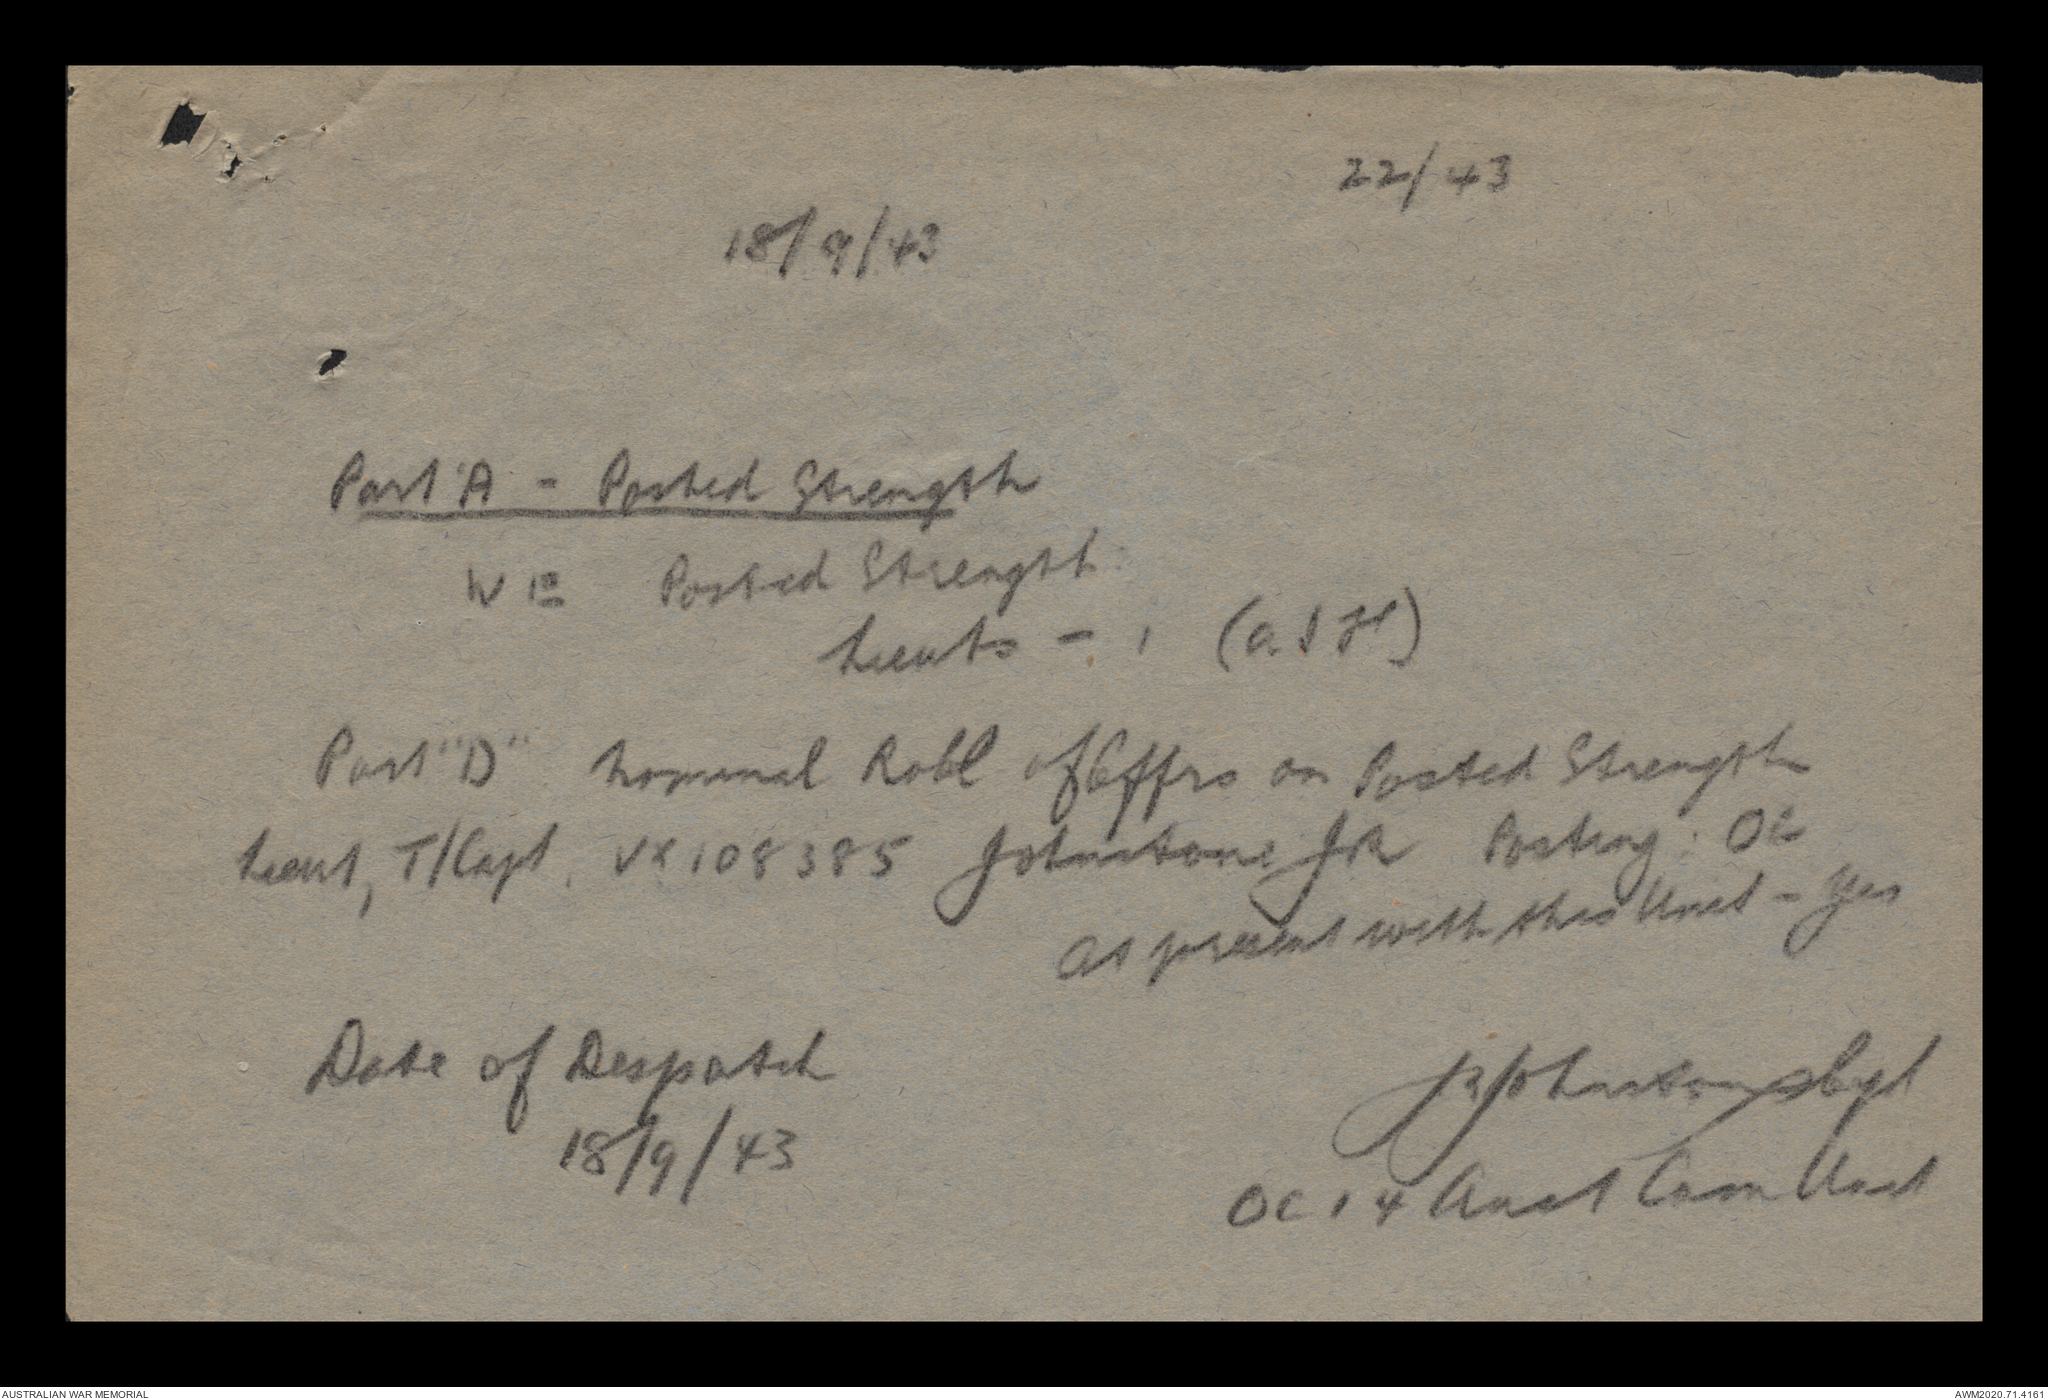 22/43
18/9/43
Part 'A - Posted Strength
Posted Strength:
Lieuts - 1 (A.I.F)
Part "D" Nominal Roll of Offrs on Posted Strength
Lieut, T/Capt. VX108385 Johnstone JR Posting: OC
At present with this Unit - Yes
Date of Despatch
18/9/43
JRJohnstone Capt
OC 14 Aust Cam Unit
AUSTRALIAN WAR MEMORIAL
AWM2020.71.4161